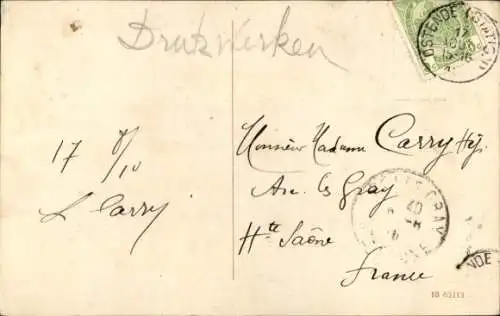 Drukwerken
OSTENDE (STATION)
17
17 8/10
L Carry
Monsieur Madame Carry
Arc les Gray
Hte Saône
France
10 63113